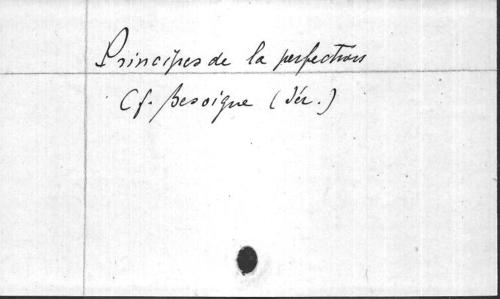 Principes de la perfection
Cf. Besoigne (Jér.)